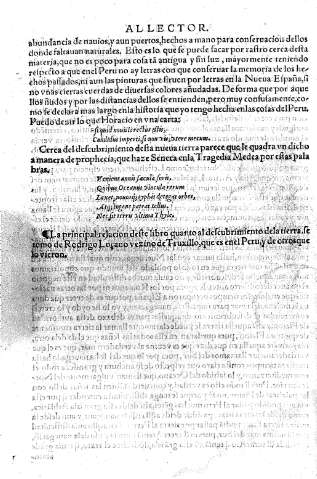 AL LECTOR.
abundancia de nauios, y aun puertos, hechos a mano para conseruaciō dellos
donde faltauan naturales. Esto es lo que se puede sacar por rastro cerca desta
materia, que no es poco para cosa tā antigua y sin luz, mayormente teniendo
respecto a que en el Peru no ay letras con que conseruar la memoria de los he
chos passados, ni aun las pinturas que siruen por letras en la Nueua España, si
no vnas ciertas cuerdas de diuersas colores añudadas. De forma que por aque
llos ñudos y por las distancias dellos se entienden, pero muy confusamente, co
mo se declara mas largo en la historia que yo tengo hecha en las cosas del Peru.
Puedo dezir lo que Horacio en vna carta:
si quid nouisti rectius istis,
Candidus imperti, si non, his vtere mecum.
Cerca del descubrimiento desta nueua tierra parece que le quadra vn dicho
a manera de prophecia, que haze Seneca en la Tragedia Medea por estas pala
bras.
Venient annis sæcula seris,
Quibus Oceanus vincula rerum
Laxet,
Atque ingens pateat tellus,
Nec sit terris vltima Thyle.
La principal relacion deste libro quanto al descubrimiento de la tierra, se
tomo de Rodrigo Loçano vezino de Truxillo, que es en el Peru, y de otros que
lo vieron.